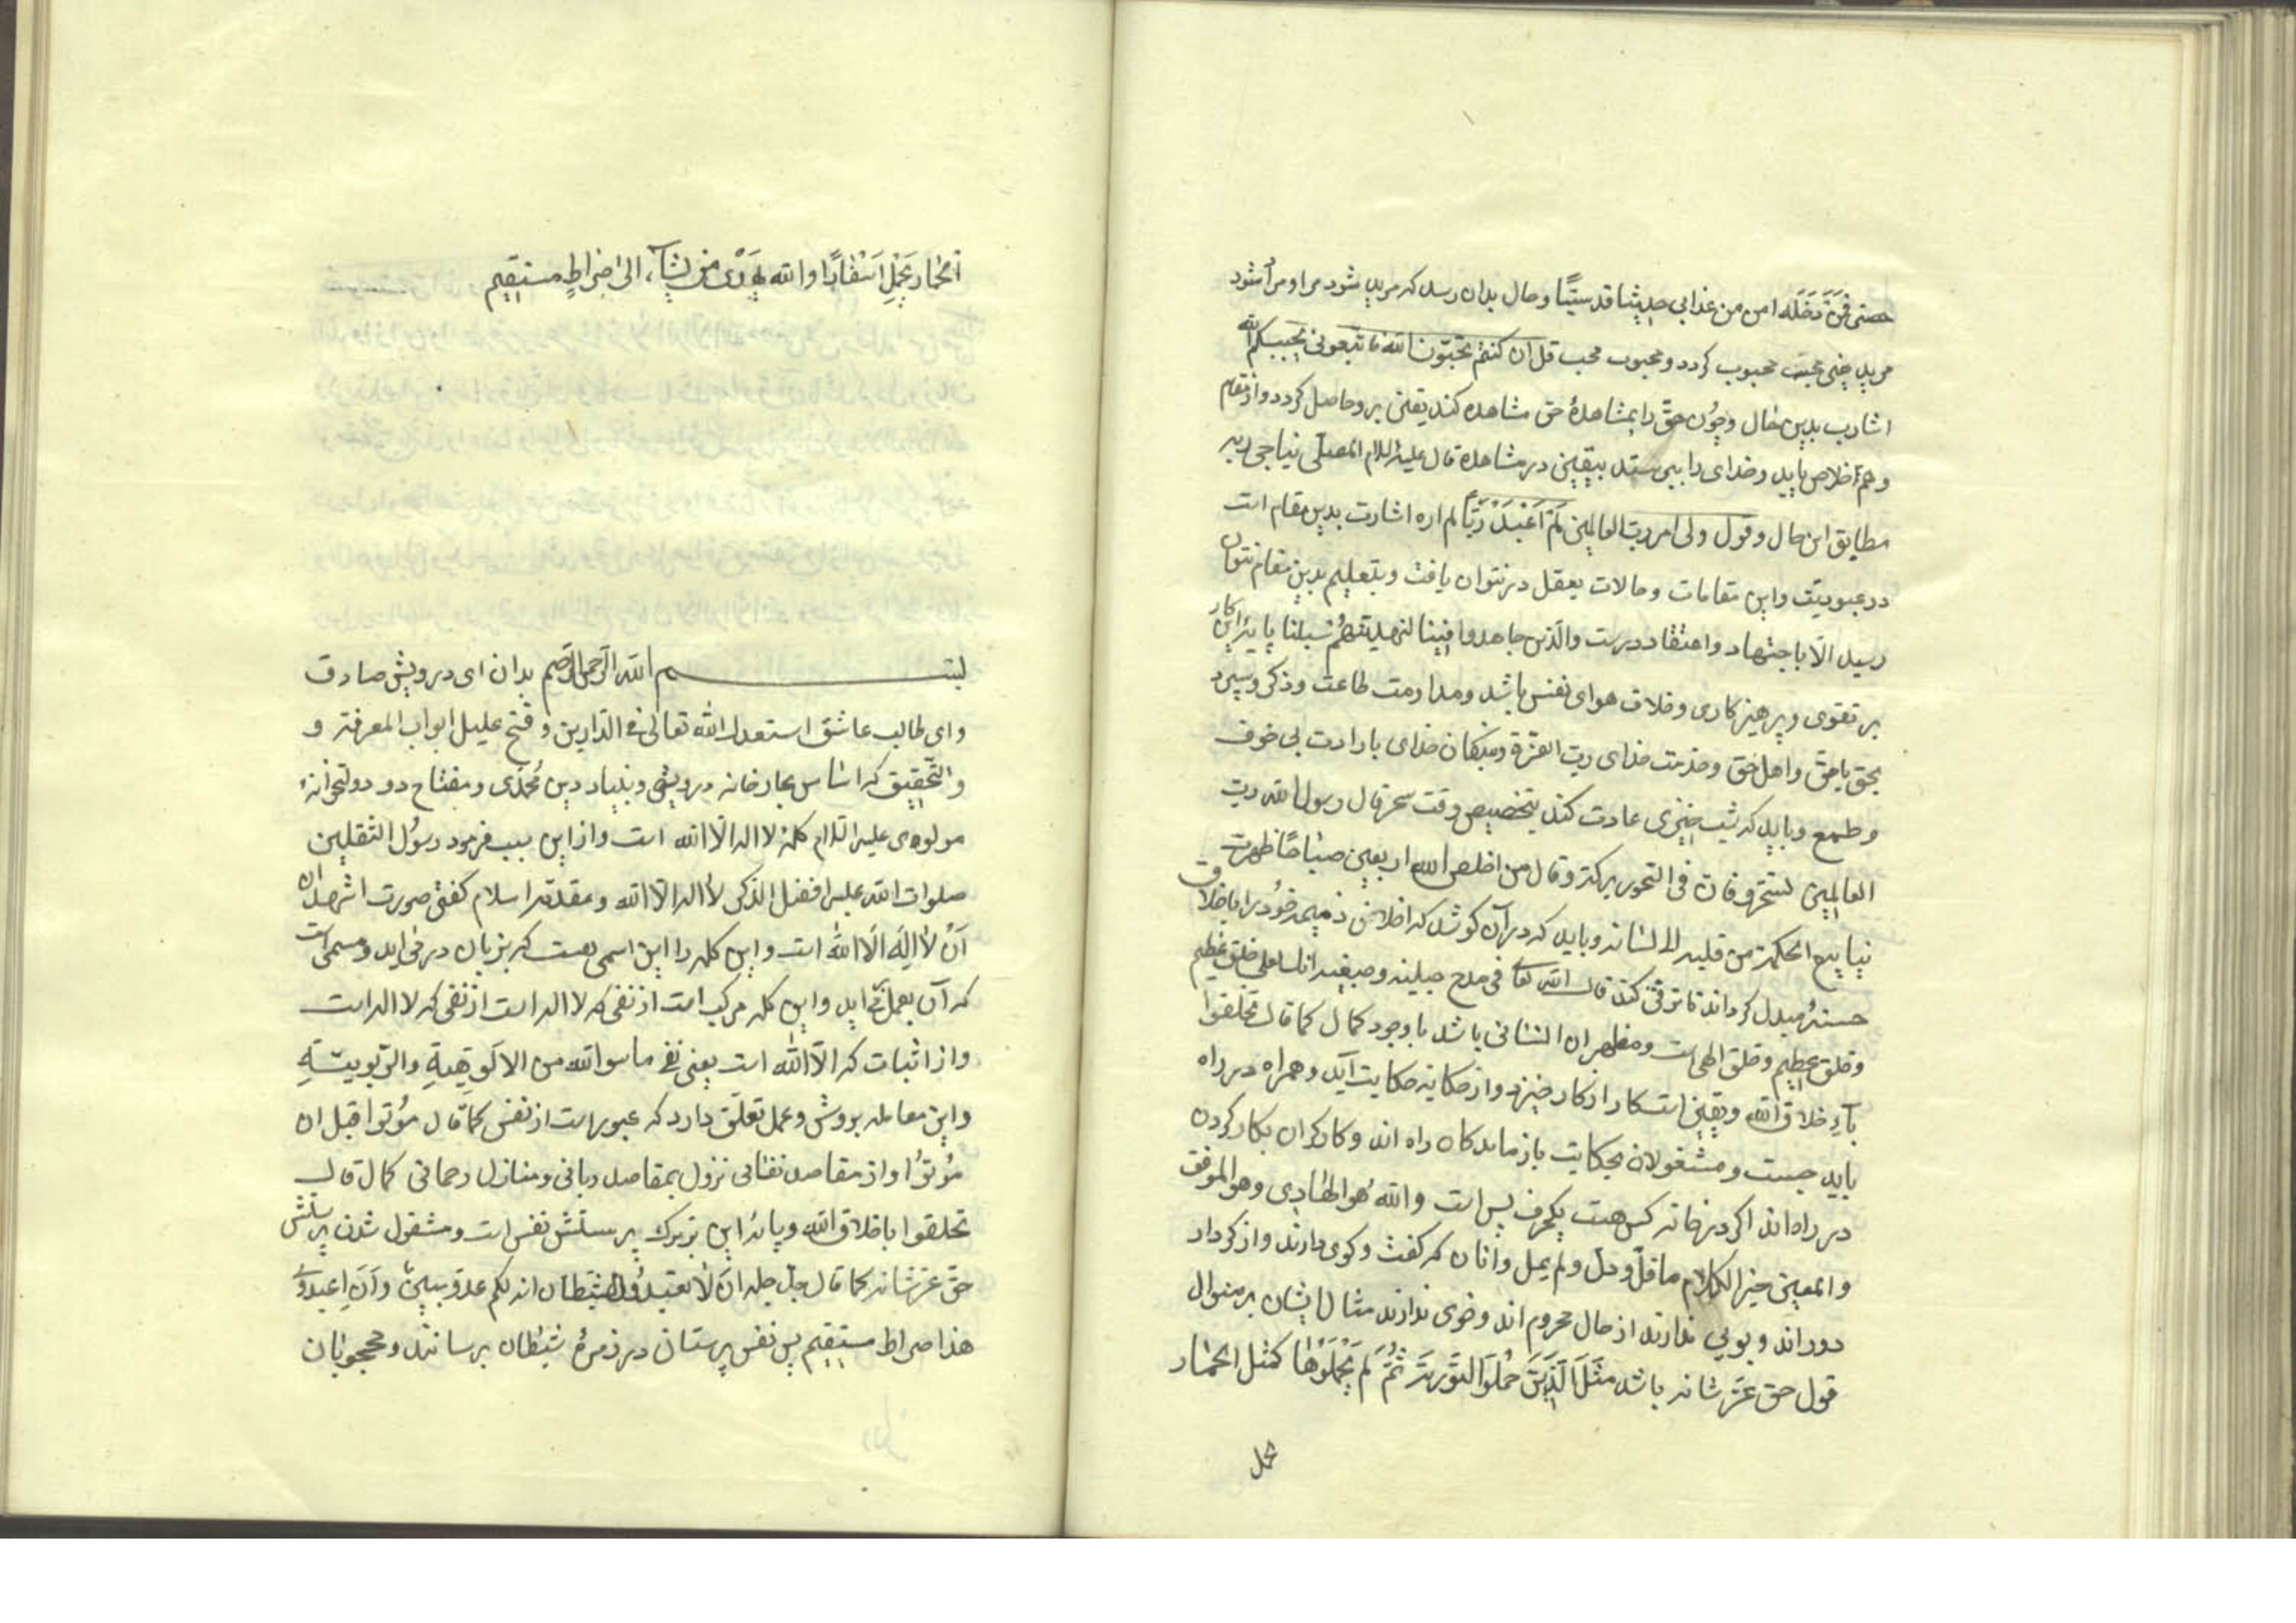 حصنی فمن دخله امن من عذابی حدیثا قدسیّا و حال بدان رسد که مرید شود مراد و مراد شود
مرید یعنی محب محبوب کردد و محبوب محب قل ان کنتم تحبّون الله فاتّبعونی یحببکم الله
اشارت بدین حال و چون حقّ را بمشاهدهٔ حق مشاهده کند یقین برو حاصل کردد و از مقام
و هم خلاص یابد و خدای را بپرستد بیقین در مشاهده قال علیه السلام المصلّی یناجی ربه
مطابق این حال و قول ولی امر رب العالمین لم اعبد ربّا لم اره اشارت بدین مقام است
در عبودیّت و این مقامات و حالات بعقل در نتوان یافت و بتعلیم بدین مقام نتوان
رسید الّا باجتهاد و اعتقاد درست والّذین جاهدوا فینا لنهدینّهم سبلنا پایهٔ این کار
بر تقوی و پرهیزکاری و خلاف هوای نفس باشد و مداومت طاعت و ذکر و سپرد
بحق یا حق و اهل حق و خدمت خدای ربّ العزّة و بندکان خدای بارادت بی خوف
و طمع و باید که شب خیزی عادت کند بتخصیص وقت سحر قال رسول الله ربّ
العالمین تسحّروا فان فی السّحور برکة و قال من اخلص لله اربعین صباحًا ظهرت
ینابیع الحکمة من قلبه الا لسانه و باید که در آن کوشد که اخلاق ذمیمه خود را باخلاق
حسنه مبدل کرداند تا ترقی کند قال الله تعا فی مدح حبیبه و صفیه انک لعلی خلق عظیم
و خلق عظیم و خلق الهی است و مظهر ان انسانی باشد با وجود کمال کما قال تخلقوا
باخلاق الله و یقین است کار از کار خیزد و از حکایة حکایت آید و همراه در راه
باید جست و مشغولان بحکایت باز ماندکان راه اند و کارکران بکار کردن
در راه اند اکر در خانه کس هست یکحرف بس است والله هو الهادی و هو الموفق
و المعین خیر الکلام ما قلّ و دلّ و لم یمل و انان که کفت و کوی دارند و از کردار
دور اند و بویی ندارند از حال محروم اند و خوی ندارند مثال ایشان بر منوال
قول حق عزّ شانه باشد مثل الّذین حملوا التّوریة ثمّ لم یحملوها کمثل الحمار
یحمل
الحمار یحمل اسفارًا والله یهدی من یشآء الی صراط مستقیم
بسم الله الرّحمن الرّحیم بدان ای درویش صادق
و ای طالب عاشق اسعدک الله تعالی فی الدّارین و فتح علیک ابواب المعرفة و
والتّحقیق که اساس کارخانه درویشی و بنیاد دین محمّدی و مفتاح در دولتخوانهٔ
مولوی علیه السّلام کلمهٔ لا اله الّا الله است و از این سبب فرمود رسول الثقلین
صلوات الله علیه افضل الذکر لا اله الّا الله و مقدّمه اسلام کفتن صورت اشهد ان
ان لا اله الّا الله است و این کلمه را این اسمی هست که بزبان در می اید و مسمی است
که آن بعمل می اید و این کلمه مرکب است از نفی که لا اله است از نفی که لا اله است
و از اثبات که الّا الله است یعنی نفی ما سوا الله من الالوهیة والرّبوبیّة
و این معامله بروش و عمل تعلّق دارد که عبور است از نفس کما قال موتوا قبل ان
موتوا و از مقاصد نفسانی نزول بمقاصد ربانی و منازل رحمانی کما قال
تخلقوا باخلاق الله و پایهٔ این بر ترک پرستش نفس است و مشغول شدن پرستش
حقّ عزّ شانه کما قال جلّ جلله ان لا تعبدوا الشّیطان انه لکم عدوّ مبین و ان اعبدونی
هذا صراط مستقیم پس نفس پرستان در زمرهٔ شیطان پرسانند و محجوبان